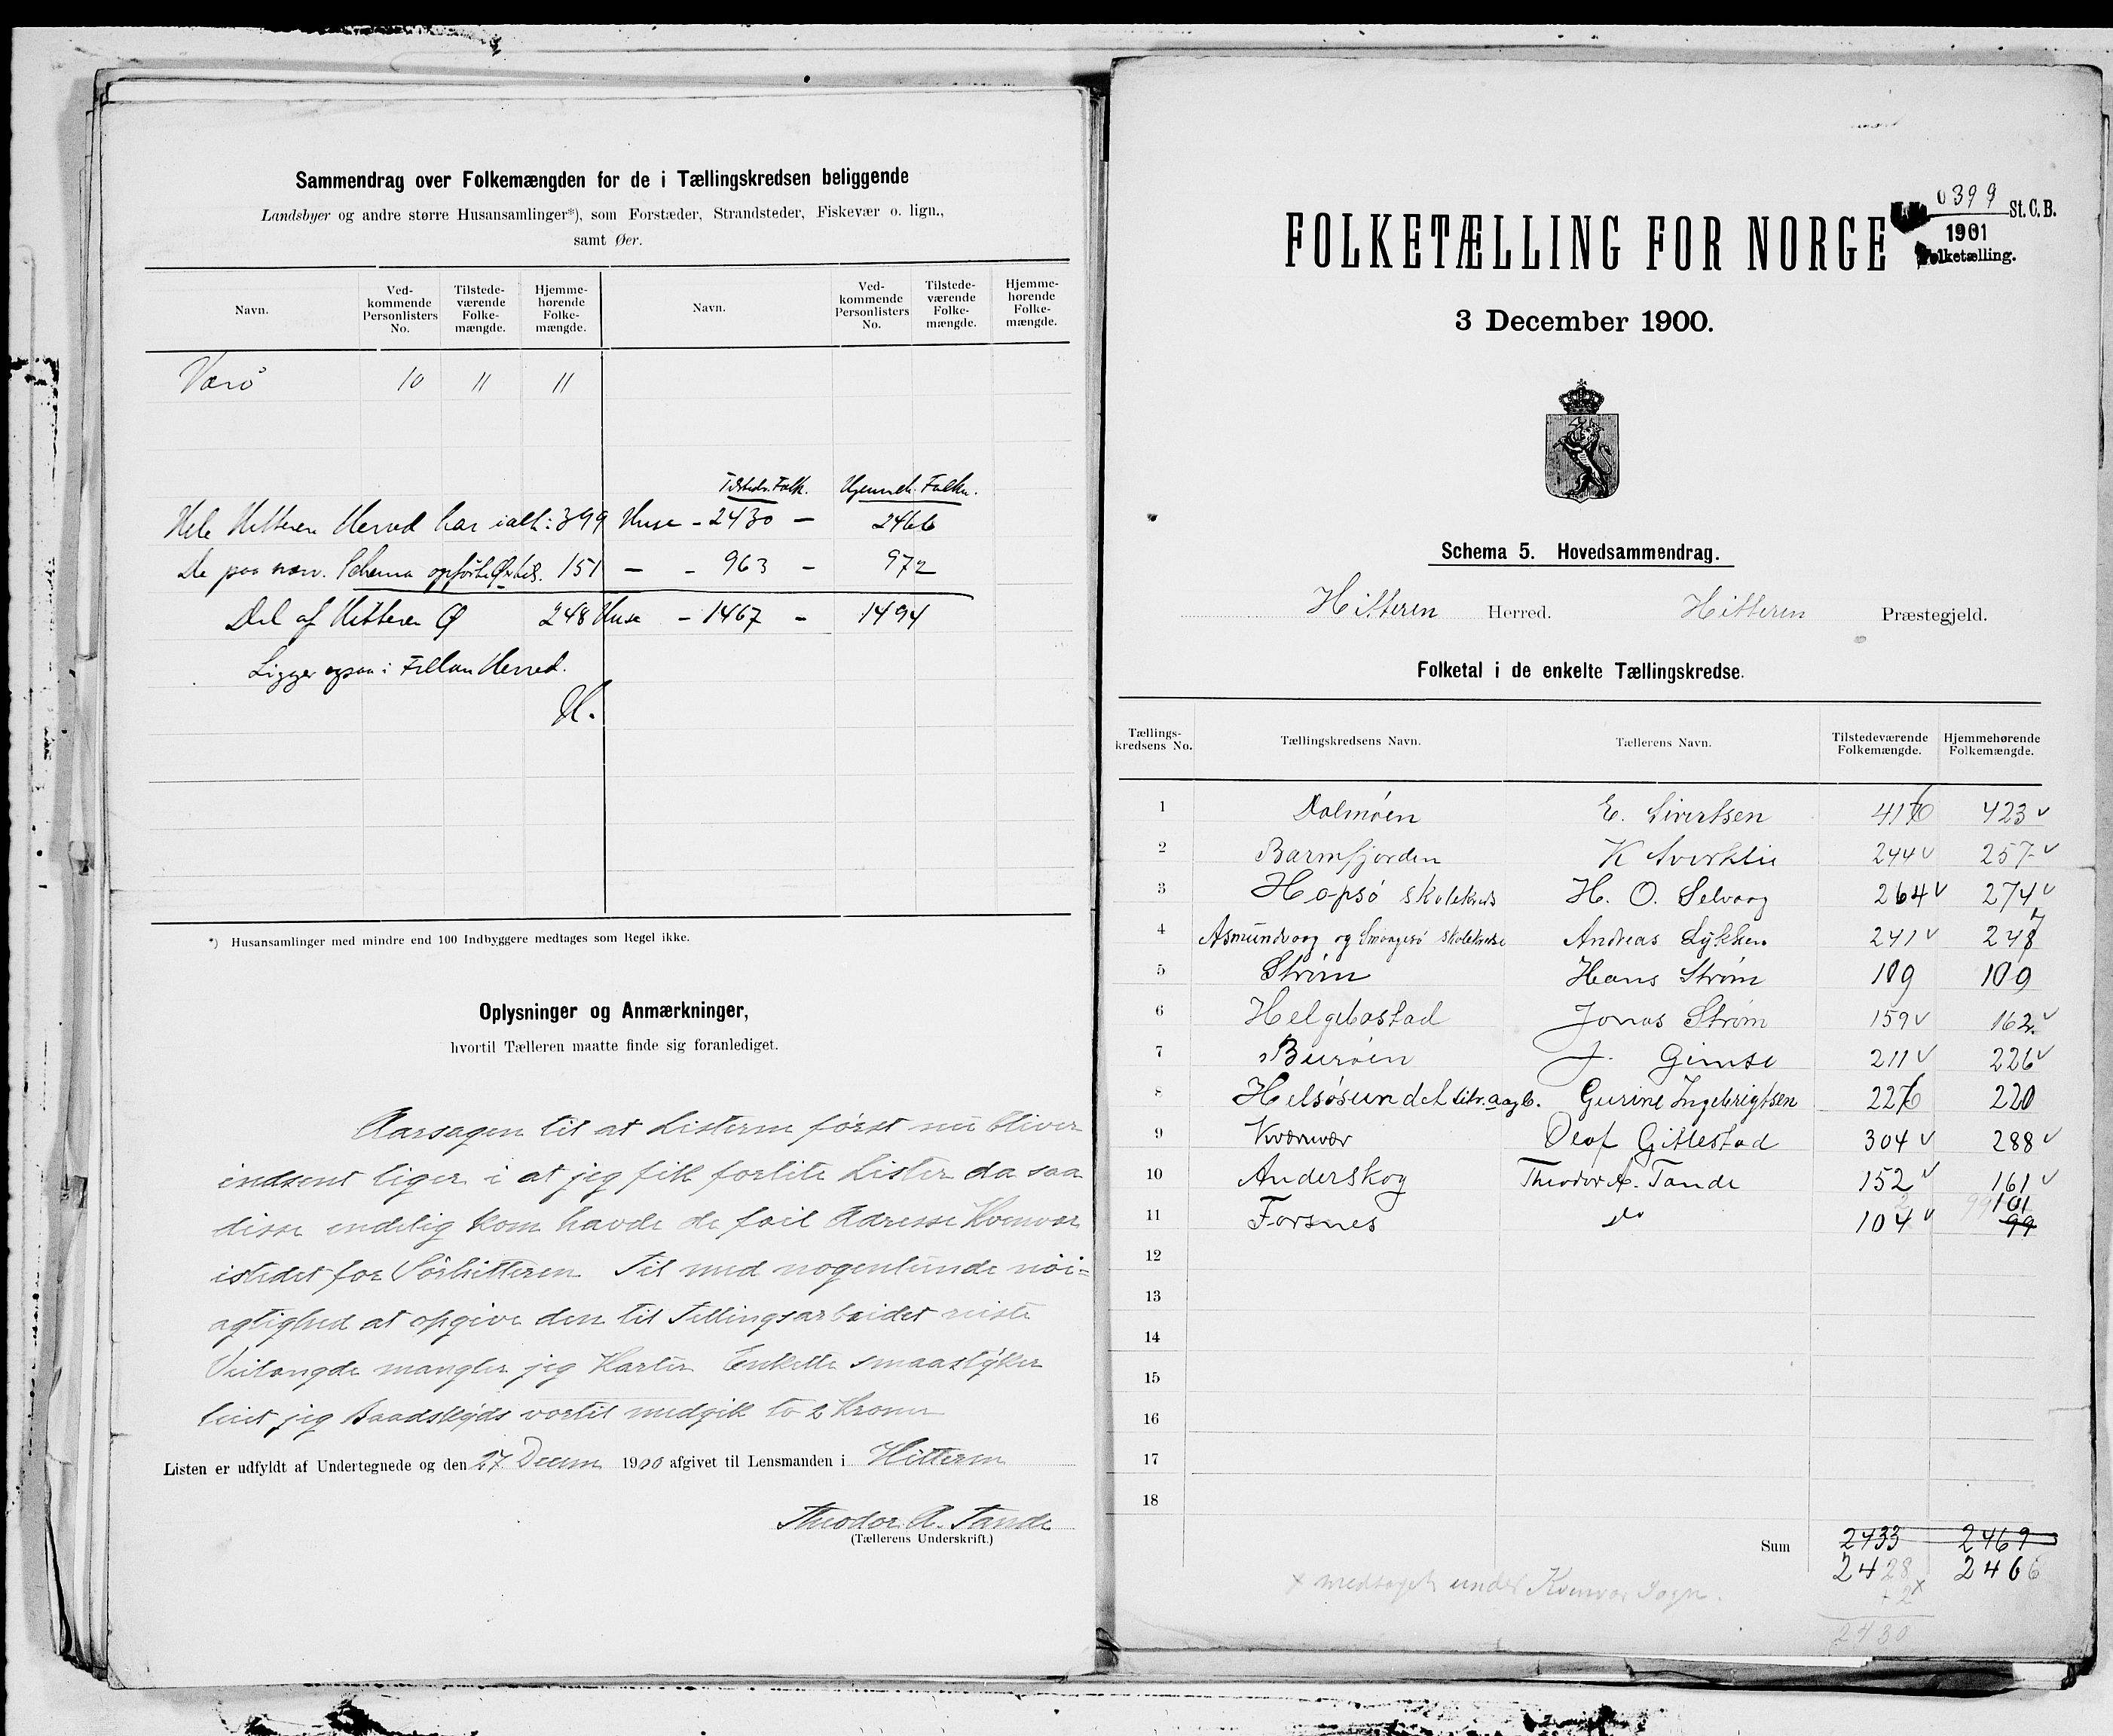 Sammendrag over Folkemængden for de i Tællingskredsen beliggende
Landsbyer og andre større Husansamlinger*), som Forstæder, Strandsteder, Fiskevær o. lign.,
samt Øer.
Navn. Ved-kommende Personlisters No. Tilstede-værende Folke-mængde. Hjemme-hørende Folke-mængde. Navn. Ved-kommende Personlisters No. Tilstede-værende Folke-mængde. Hjemme-hørende Folke-mængde.
Værö 10 11 11
Tilstedv. Folk. Hjemmeh. Folkm.
Hele Hitteren Herred har ialt: 399 Huse - 2430 - 2466
De paa nærv. Schema opførte 151 - - 963 - 972
Del af Hitteren Ø 248 Huse - 1467 - 1494
Ligger ogsaa i Fillan Herred.
H.
*) Husansamlinger med mindre end 100 Indbyggere medtages som Regel ikke.
Oplysninger og Anmærkninger,
hvortil Tælleren maatte finde sig foranlediget.
Aarsagen til at Listerne først nu bliver
indsent liger i at jeg fik forlite Lister da saa
disse endelig kom havde de feil Adresse Kvenvær
istedet for Sørhitteren Til med nogenlunde nöi=
agtighed at opgive den til Tellingsarbeidet reiste
Veilængde mangler jeg Karter Enkelte smaastyker
leiet jeg Baadskyds vortil medgik to 2 Kroner
Listen er udfyldt af Undertegnede og den 27 Decem 1900 afgivet til Lensmanden i Hitteren
Theodor A. Tande
(Tællerens Underskrift.)
0399 St. C. B.
1901
Folketælling.
FOLKETÆLLING FOR NORGE
3 December 1900.
Schema 5. Hovedsammendrag.
Hitteren Herred. Hitteren Præstegjeld.
Folketal i de enkelte Tællingskredse.
Tællings-kredsens No. Tællingskredsens Navn. Tællerens Navn. Tilstedeværende Folkemængde. Hjemmehørende Folkemængde.
1 Dolmöen E. Sivertsen 416 423 v
2 Barmfjorden K Svorklie 244 v 257 v
3 Hopsö skolekreds H. O. Selvaag 264 v 274 v
4 Asmundvaag og Smaagesø skolekredse Andreas Lykken 241 v 247
5 Strøm Hans Strøm 109 109
6 Helgebostad Jonas Strøm 159 v 162 v
7 Buröen J. Gimse 211 v 226 v
8 Helsösundet Gurine Ingebrigtsen 226 220
9 Kværnvær Olaf Gittestad 304 v 288 v
10 Anderskog Theodor A. Tande 152 v 161 v
11 Forsnes do 104 v 99 101
12
13
14
15
16
17
18
Sum 2433 2469
2428 2466
+ 2 x
2430
x medtaget under Kvenvær Sogn.